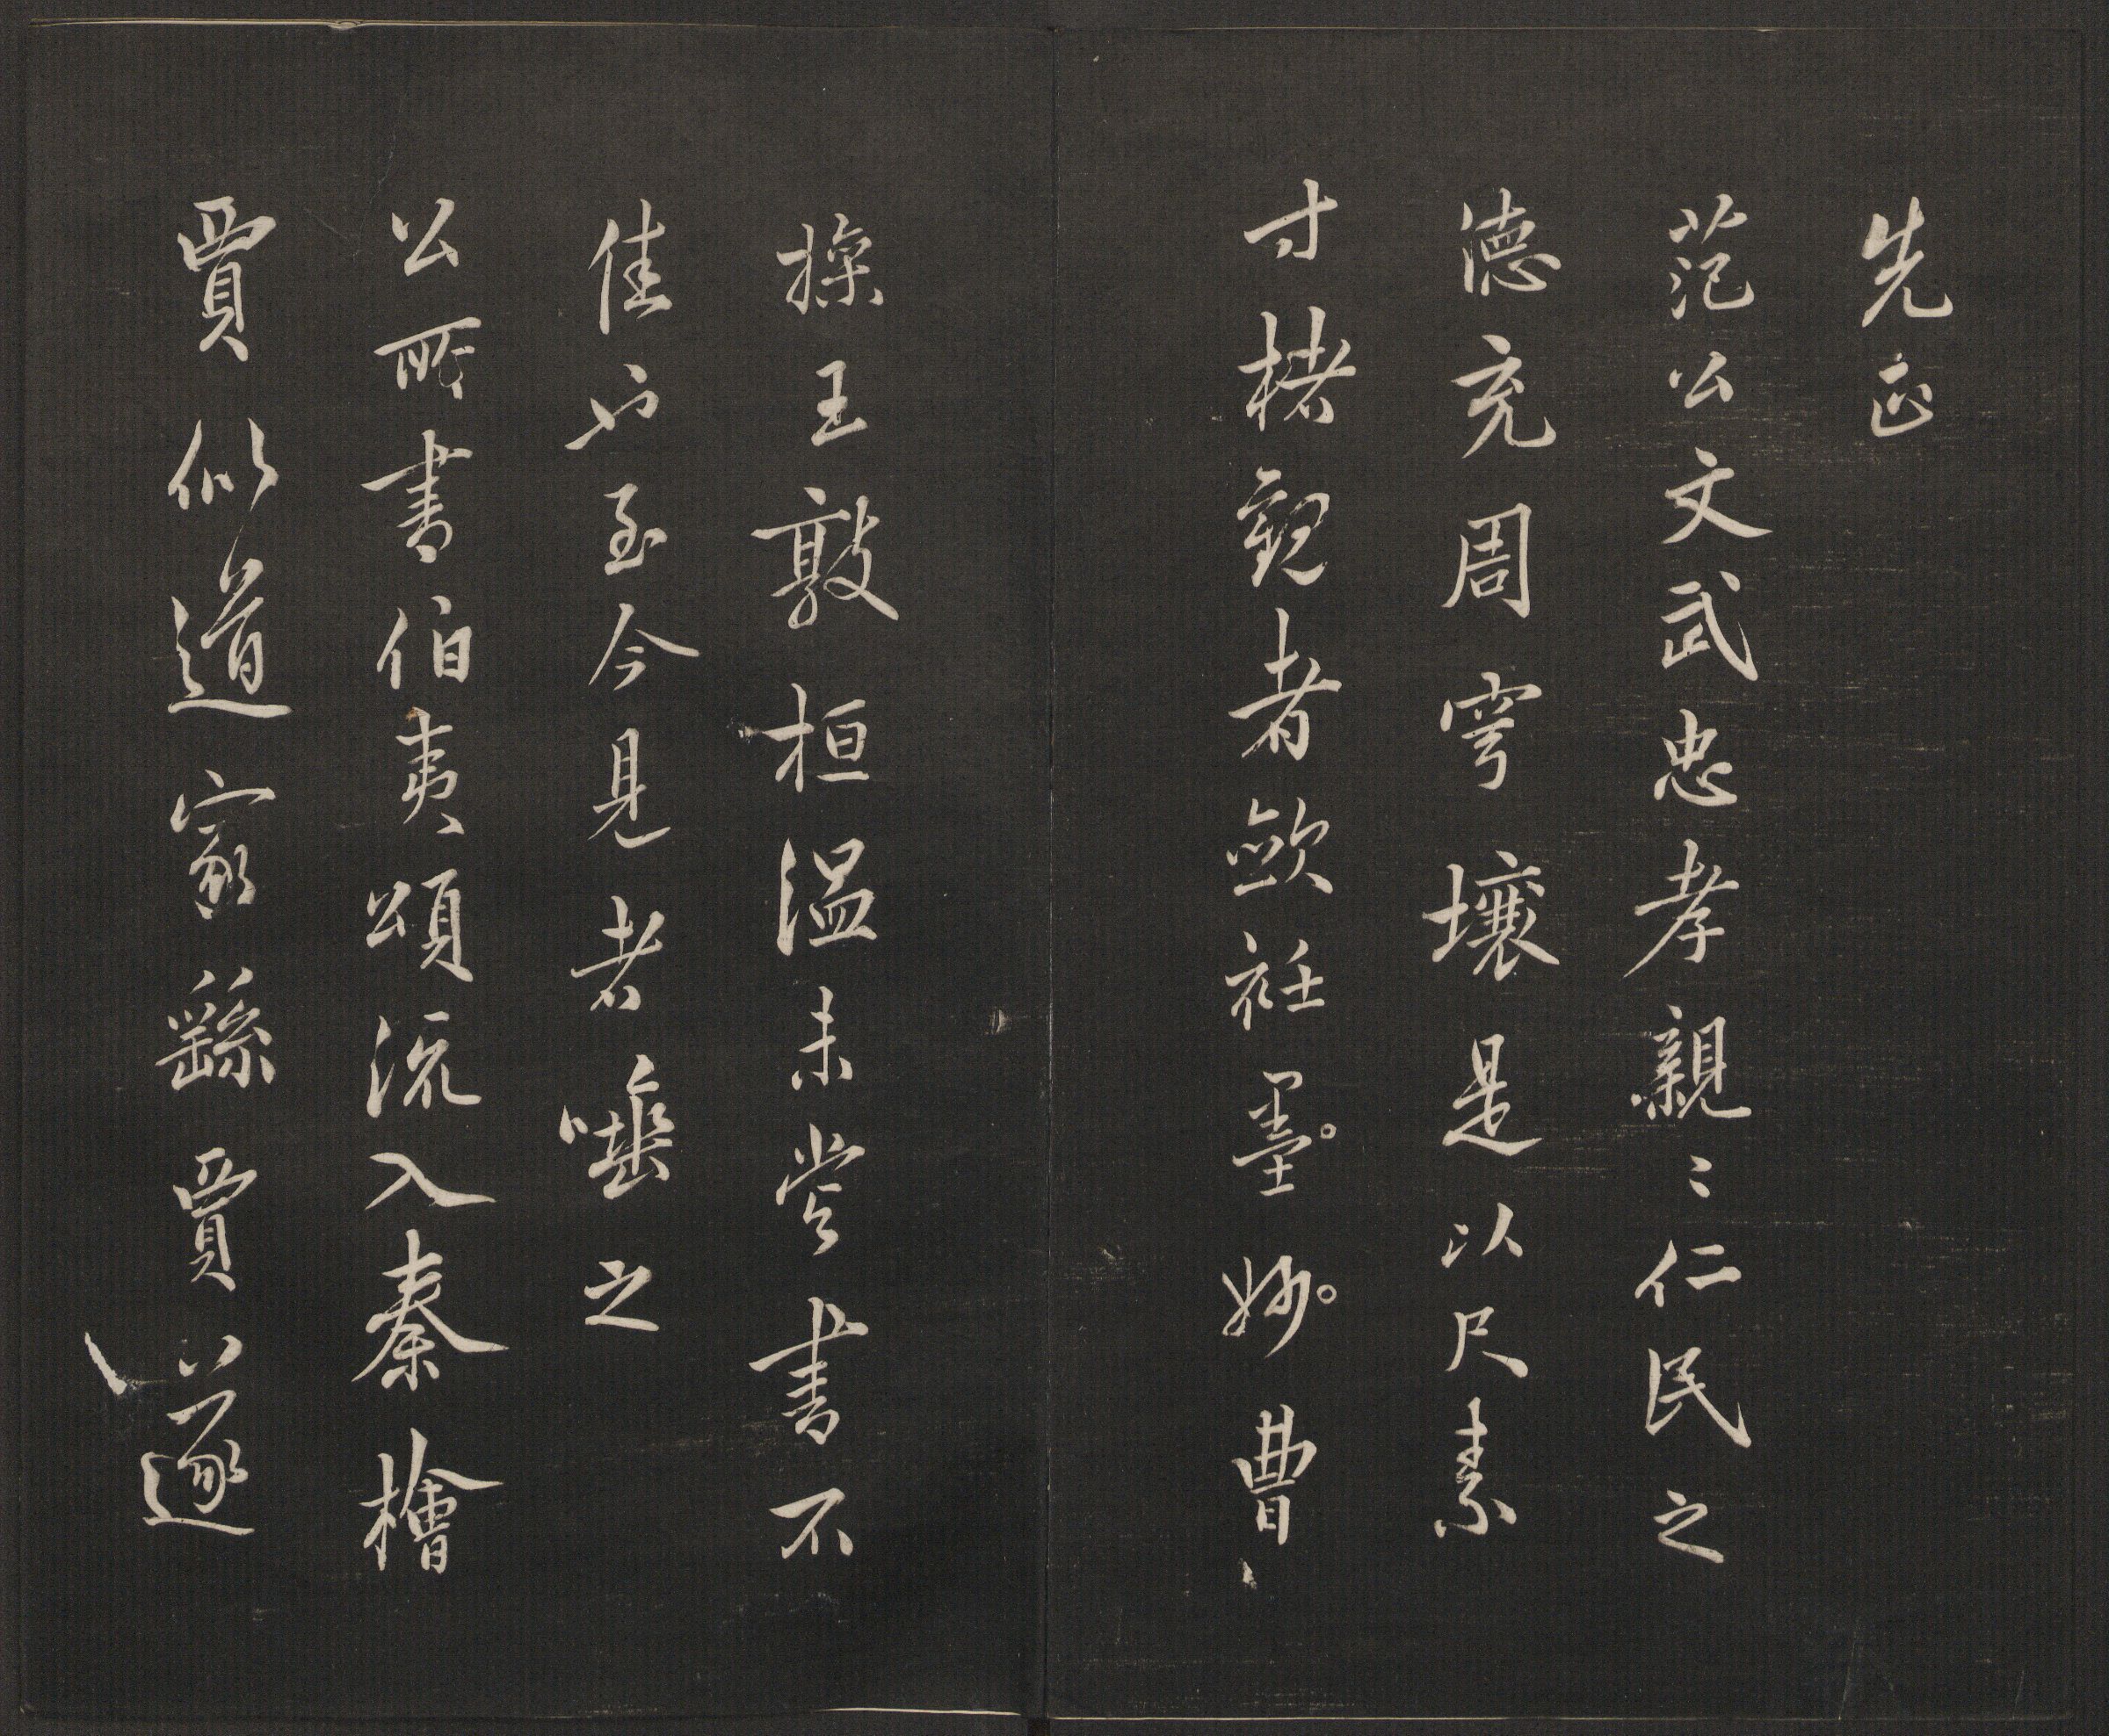 先正
范公文武忠孝親〻仁民之
德充周穹壤是以尺素
寸楮觀者歛衽墨妙曹
操王敦桓温未嘗書不
佳也至今見者唾之
公所書伯夷頌流入秦檜
賈似道家繇賈遂